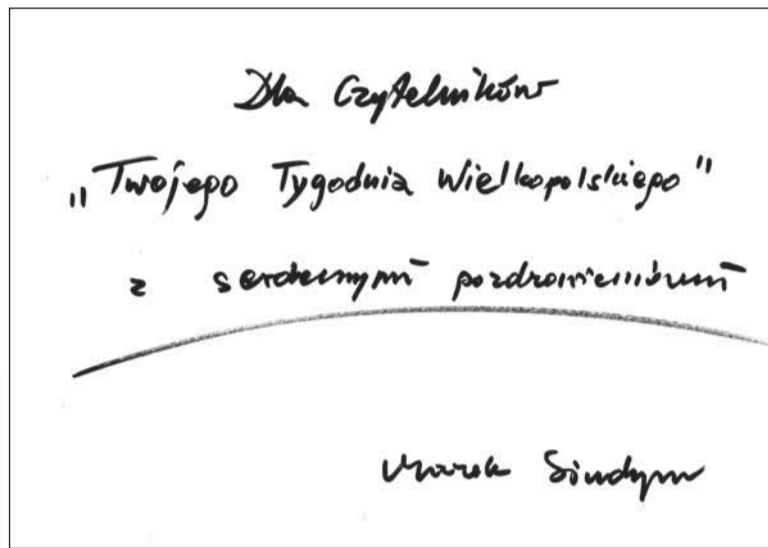 Dla Czytelników
„Twojego Tygodnia Wielkopolskiego"
z serdecznymi pozdrowieniami
Marek